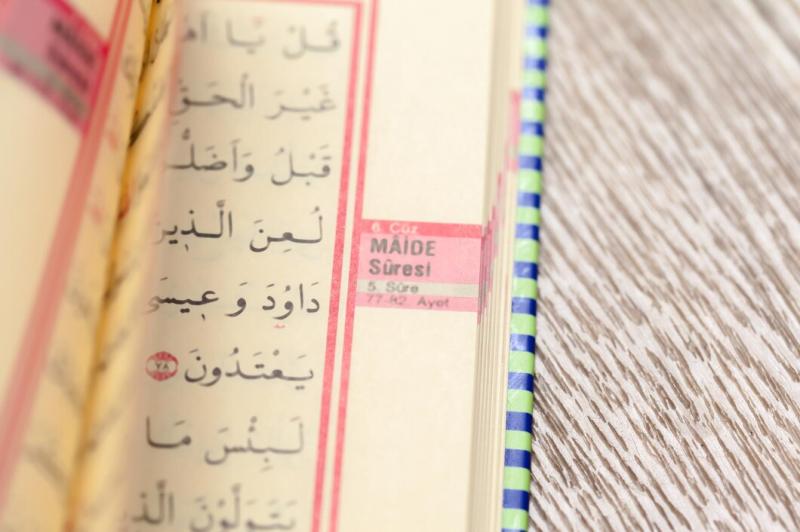 قُلْ يَٓا
غَيْرَ الْحَقِّ
قَبْلُ وَاَضَلُّ
لُعِنَ الَّذ۪ينَ
دَاوُ۫دَ وَع۪يسَى
يَعْتَدُونَ ﴿٧٨﴾
لَبِئْسَ مَا
يَتَوَلَّوْنَ
6. Cüz
MÂİDE
Sûresi
5. Sûre
77-82. Ayet